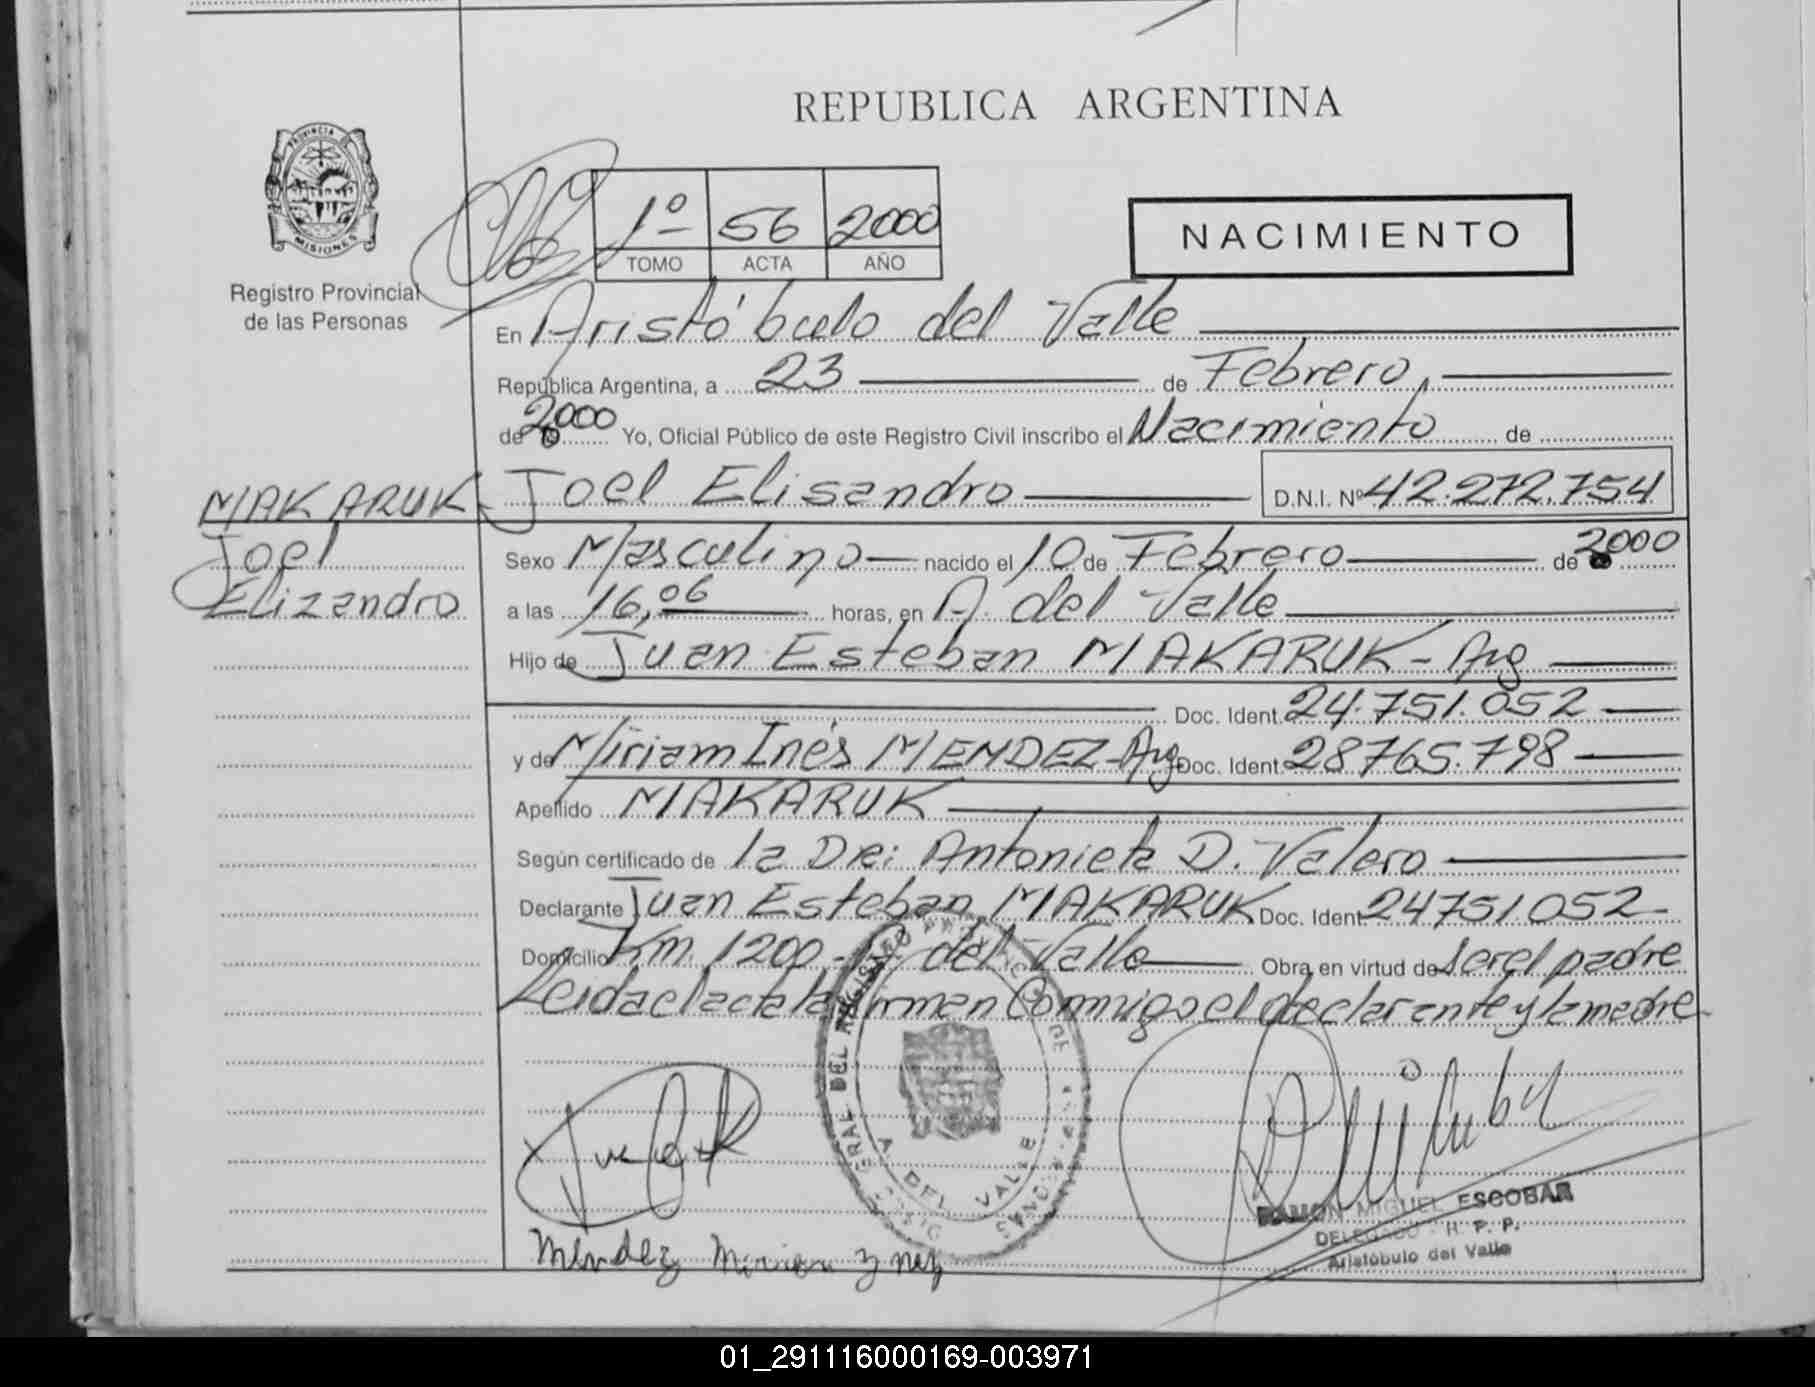 REPUBLICA ARGENTINA
PROVINCIA
MISIONES
Registro Provincial
de las Personas
1º 56 2000
TOMO ACTA AÑO
NACIMIENTO
En Aristóbulo del Valle
República Argentina, a 23 de Febrero,
de 2000 Yo, Oficial Público de este Registro Civil inscribo el Nacimiento de
Joel Elisandro D.N.I. Nº 42.272.754
MAKARUK
Joel
Elizandro
Sexo Masculino nacido el 10 de Febrero de 2000
a las 16,06 horas, en A. del Valle
Hijo de Juan Esteban MAKARUK - Arg
Doc. Ident. 24.751.052
y de Miriam Inés MENDEZ - Arg Doc. Ident. 28765.798
Apellido MAKARUK
Según certificado de la Dra: Antonieta D. Valero
Declarante Juan Esteban MAKARUK Doc. Ident. 24751.052
Domicilio Km. 1200 - A. del Valle Obra en virtud de ser el padre
Leida el acta la firman Conmigo el declarante y la madre
A. DEL VALLE
Mendez Mirian Ynez
RAMON MIGUEL ESCOBAR
DELEGADO - R. P. P.
Aristóbulo del Valle
01_291116000169-003971